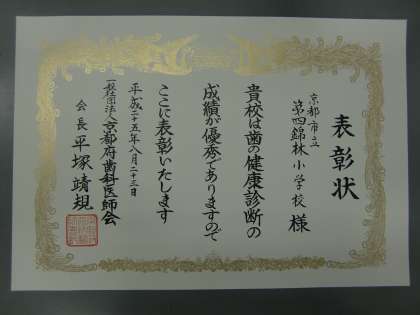 表彰状
京都市立
第四錦林小学校 様
貴校は歯の健康診断の
成績が優秀でありますので
ここに表彰いたします
平成二十五年八月二十三日
一般社団法人京都府歯科医師会
会長 平塚靖規